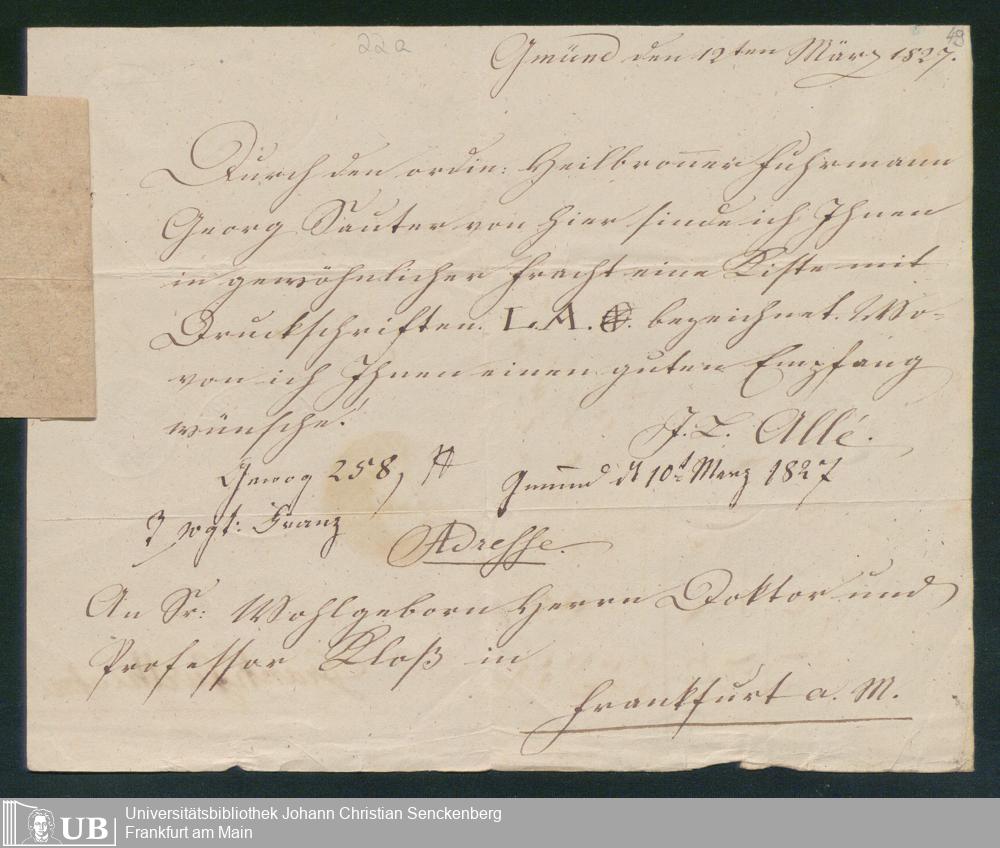 22a
49
Gmünd den 12ten März 1827.
Durch den ordin: Heilbronner Fuhrmann
Georg Sauter von hier sende ich Ihnen
in gewöhnlicher Fracht eine Kiste mit
Druckschriften. L. A. bezeichnet. Wo-
von ich Ihnen einen guten Empfang
wünsche!
J. L. Allé.
258
Gmünd d 10t Merz 1827
Franz
Adresse.
An Sr: Wohlgeborn Herrn Doktor und
Professor Kloß in
Frankfurt a. M.
UB
Universitätsbibliothek Johann Christian Senckenberg
Frankfurt am Main